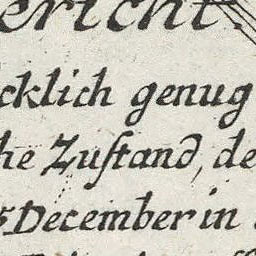 ericht.
cklich genug
he Zuſtand, de
5 December in